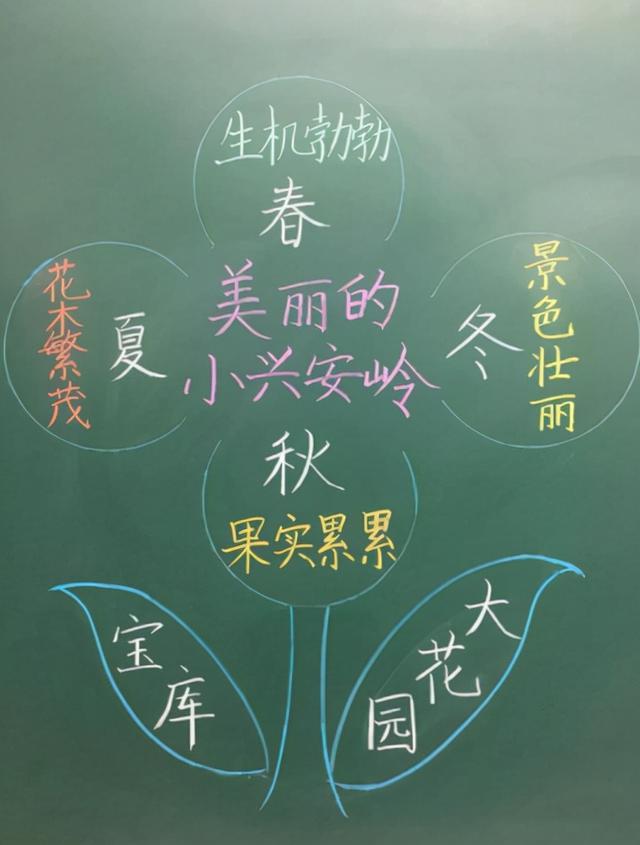 生机勃勃
春
美丽的
小兴安岭
花木繁茂
夏
冬
景色壮丽
秋
果实累累
宝库
大花园